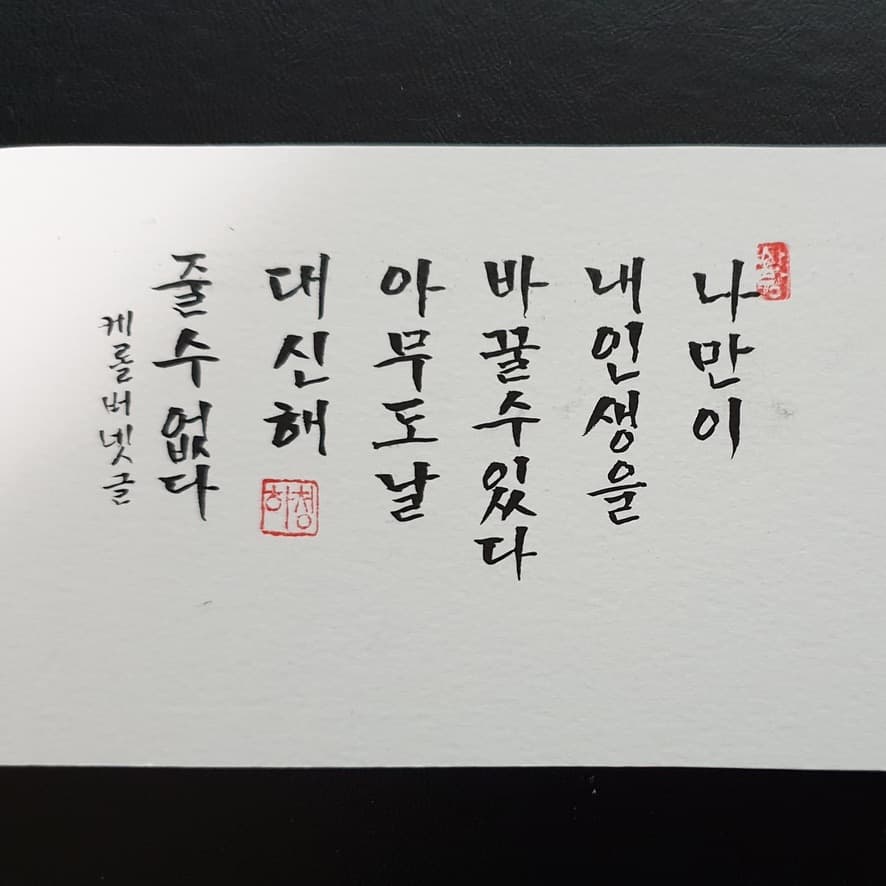 나만이
내인생을
바꿀수있다
아무도날
대신해
줄수없다
케롤버넷글
하청